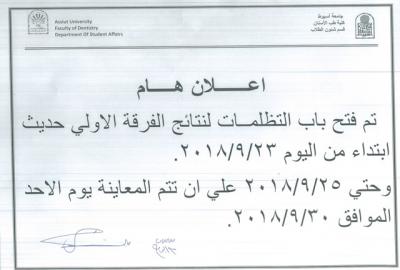 Assiut University
Faculty of Dentistry
Department Of Student Affairs
جامعة أسيوط
كلية طب الأسنان
قسم شئون الطلاب
اعلان هام
تم فتح باب التظلمات لنتائج الفرقة الاولي حديث
ابتداء من اليوم ٢٠١٨/٩/٢٣.
وحتي ٢٠١٨/٩/٢٥ علي ان تتم المعاينة يوم الاحد
الموافق ٢٠١٨/٩/٣٠.